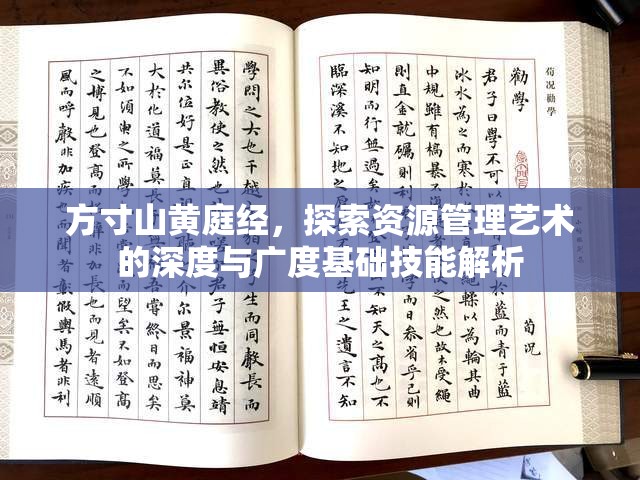 方寸山黄庭经，探索资源管理艺术
的深度与广度基础技能解析
荀况勸學
勸學
荀况
君子曰學不可以
於藍而青于藍
冰水為之而寒於
輮以為輪其曲
中規雖有槁暴
之然也故木受
則直金就礪則利
日參省乎己則
知明而行無過矣
不知天之高也
臨深溪不知地之
王之遺言不知
學問之大也干越
生而同聲長而
異俗教使之然也
君子無恒安息靖
共爾位好是正直
介爾景福神莫
大於化道福莫長
吾嘗終日而思矣
不如須臾之所學
而望矣不如登高
之博見也登高而
見者遠順
風而呼聲非加疾
彰假輿馬者非利